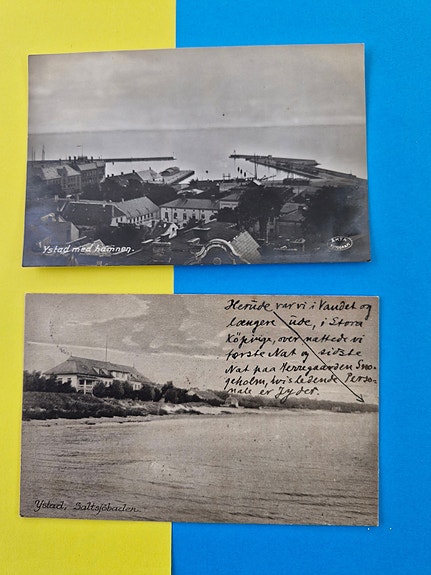 Ystad med hamnen.
Herude var vi i Vandet og
længere ude, i Stora
Köpinge, overnattede vi
første Nat og sidste
Nat paa Herregaarden Sno-
geholm, hvis ledende Perso-
nale er Jyder.
Ystad, Saltsjöbaden.